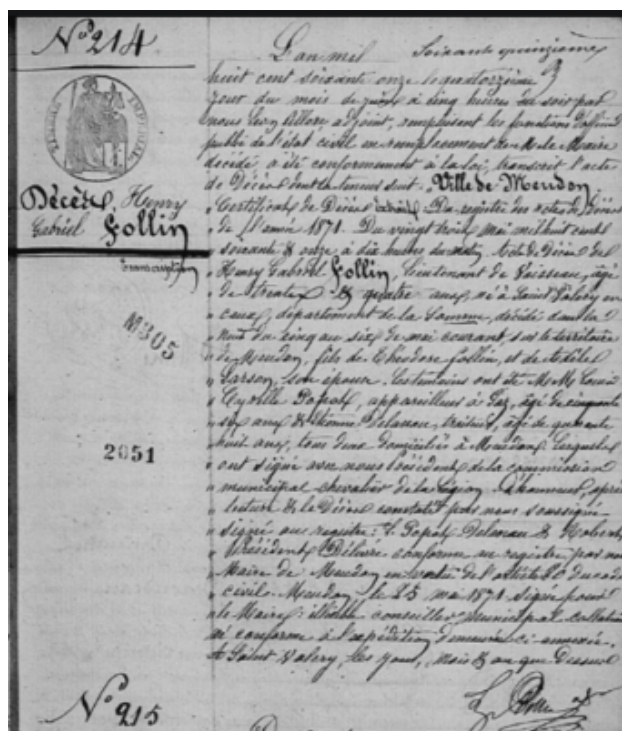 Nº 214
TIMBRE IMPERIAL
Décès, Henry
Gabriel Follin
transcription
M305
2051
L'an mil Soixante quinzième
huit cent soixante onze le quatorzième
jour du mois de juin à cinq heures du soir par
nous adjoint, remplissant les fonctions d'officier
public de l'état civil en remplacement de M. le Maire
décédé, a été conformément à la loi, transcrit l'acte
de Décès dont la teneur suit: Ville de Meudon
Certificat de Décès Du registre des actes de Décès
de l'année 1871. Du vingt trois mai mil huit cent
soixante & onze à dix heures du matin, Acte de Décès de
Henry Gabriel Follin, lieutenant de Vaisseau, âgé
de trente & quatre ans, né à Saint Valery en
caux, département de la Somme, décédé dans la
nuit du cinq au six de mai courant, sur le territoire
de Meudon, fils de Théodore Follin, et de
son épouse. Les témoins ont été M M Louis
Cyrille Popot, appareilleur à Gaz, âgé de cinquante
six ans & Etienne Delanou, traiteur, âgé de quarante
huit ans, tous deux domiciliés à Meudon, lesquels
ont signé avec nous Président de la commission
municipal chevalier de la Légion d'honneur, après
lecture & le Décès constaté par nous soussigné
signé au registre: Popot, Delanou & Robert,
Président. Délivré conforme au registre par nous
Maire de Meudon en vertu de l'article 80 du code
civil. Meudon, le 25 mai 1871. Signé pour
le Maire: conseiller municipal
conforme à l'expédition demeurée ci annexée.
A Saint Valery les jour, mois & an que Dessus
Nº 215